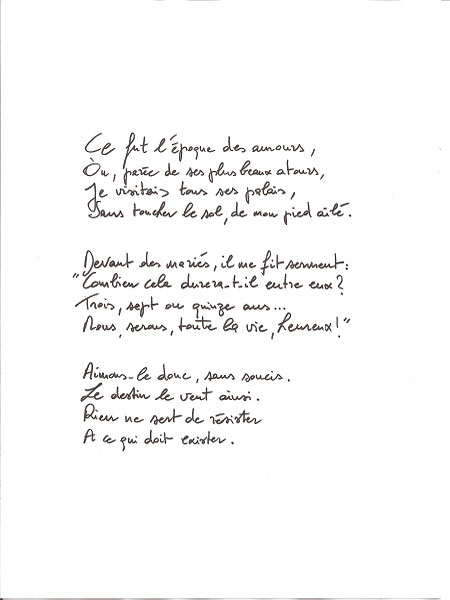 Ce fut l'époque des amours,
Où, parée de ses plus beaux atours,
Je visitais tous ses palais,
Sans toucher le sol, de mon pied ailé.
Devant des mariés, il me fit serment:
"Combien cela durera-t-il entre eux?
Trois, sept ou quinze ans...
Nous, serons, toute la vie, heureux!"
Aimons-le donc, sans soucis.
Le destin le veut ainsi.
Rien ne sert de résister
A ce qui doit exister.